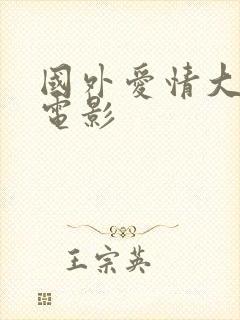 國外愛情大
電影
王宗英